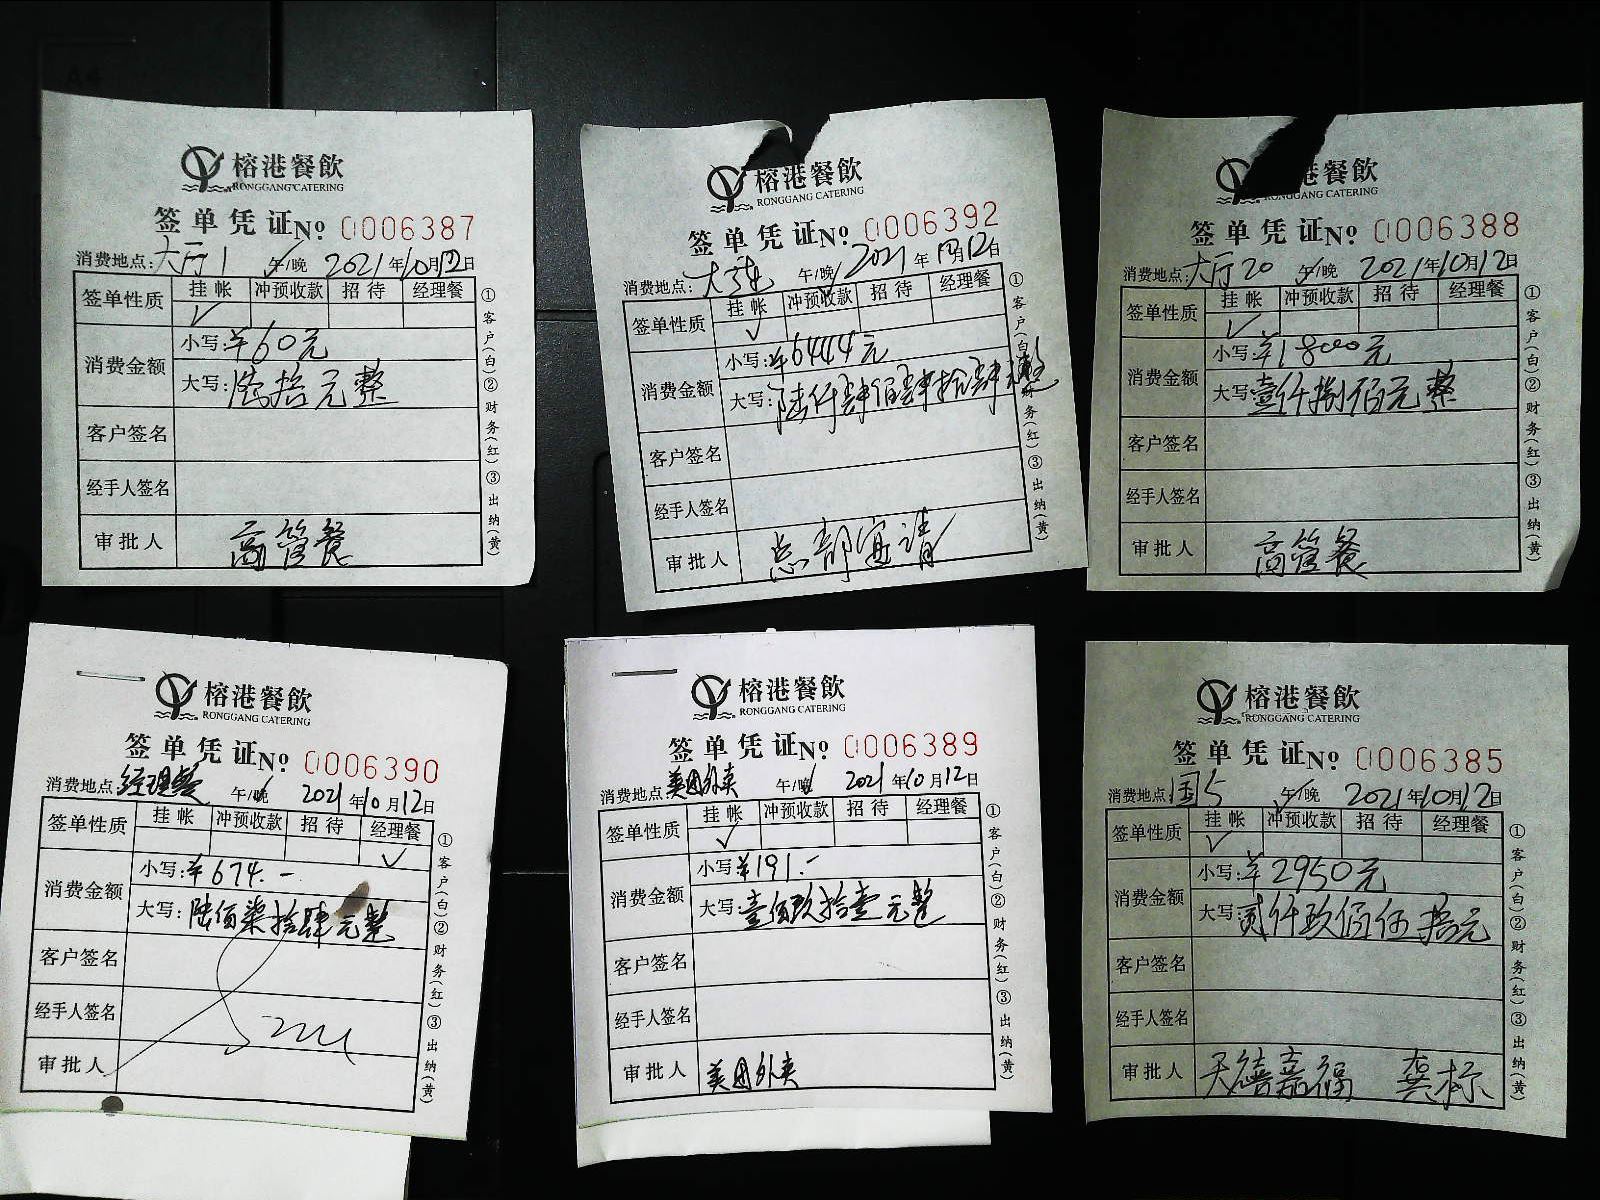 榕港餐飲
RONGGANG CATERING
签单凭证 No 0006387
消费地点: 大厅1 午/晚 2021年10月12日
签单性质 挂帐 冲预收款 招待 经理餐
✓
消费金额 小写: ¥60元
大写: 陆拾元整
客户签名
经手人签名
审批人 高管餐
①客户(白)②财务(红)③出纳(黄)
榕港餐飲
RONGGANG CATERING
签单凭证 No 0006392
消费地点: 大 午/晚 2021年10月12日
签单性质 挂帐 冲预收款 招待 经理餐
✓
消费金额 小写: ¥6444元
大写: 陆仟肆佰肆拾肆元整
客户签名
经手人签名
审批人 总部宴请
①客户(白)②财务(红)③出纳(黄)
榕港餐飲
RONGGANG CATERING
签单凭证 No 0006388
消费地点: 大厅20 午/晚 2021年10月12日
签单性质 挂帐 冲预收款 招待 经理餐
✓
消费金额 小写: ¥1800元
大写: 壹仟捌佰元整
客户签名
经手人签名
审批人 高管餐
①客户(白)②财务(红)③出纳(黄)
榕港餐飲
RONGGANG CATERING
签单凭证 No 0006390
消费地点 经理餐 午/晚 2021年10月12日
签单性质 挂帐 冲预收款 招待 经理餐
✓
消费金额 小写: ¥674.-
大写: 陆佰柒拾肆元整
客户签名
经手人签名
审批人
①客户(白)②财务(红)③出纳(黄)
榕港餐飲
RONGGANG CATERING
签单凭证 No 0006389
消费地点: 美团外卖 午/晚 2021年10月12日
签单性质 挂帐 冲预收款 招待 经理餐
✓
消费金额 小写 ¥191.-
大写: 壹佰玖拾壹元整
客户签名
经手人签名
审批人 美团外卖
①客户(白)②财务(红)③出纳(黄)
榕港餐飲
RONGGANG CATERING
签单凭证 No 0006385
消费地点 国5 午/晚 2021年10月12日
签单性质 挂帐 冲预收款 招待 经理餐
✓
消费金额 小写: ¥2950元
大写: 贰仟玖佰伍拾元
客户签名
经手人签名
审批人 天禧嘉福 龚标
①客户(白)②财务(红)③出纳(黄)